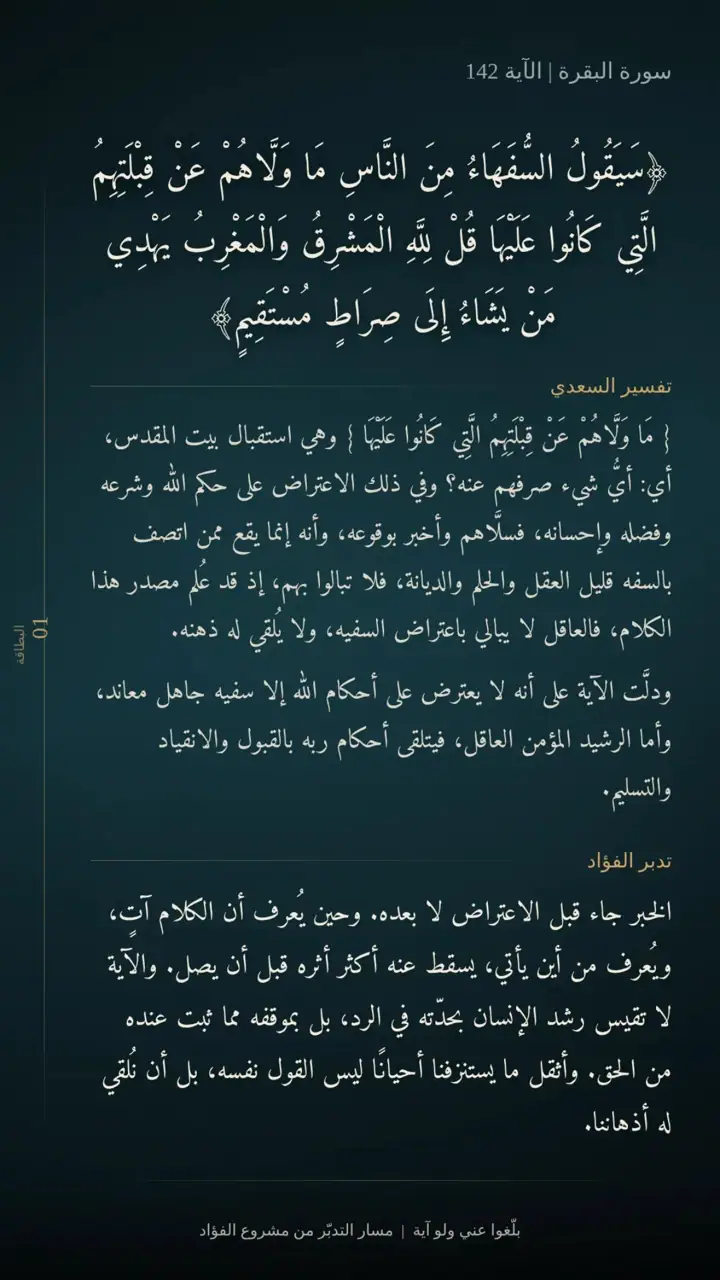 سورة البقرة | الآية 142
﴿سَيَقُولُ السُّفَهَاءُ مِنَ النَّاسِ مَا وَلَّاهُمْ عَنْ قِبْلَتِهِمُ
الَّتِي كَانُوا عَلَيْهَا قُلْ لِلَّهِ الْمَشْرِقُ وَالْمَغْرِبُ يَهْدِي
مَنْ يَشَاءُ إِلَى صِرَاطٍ مُسْتَقِيمٍ﴾
تفسير السعدي
{ مَا وَلَّاهُمْ عَنْ قِبْلَتِهِمُ الَّتِي كَانُوا عَلَيْهَا } وهي استقبال بيت المقدس،
أي: أيُّ شيء صرفهم عنه؟ وفي ذلك الاعتراض على حكم الله وشرعه
وفضله وإحسانه، فسلَّاهم وأخبر بوقوعه، وأنه إنما يقع ممن اتصف
بالسفه قليل العقل والحلم والديانة، فلا تبالوا بهم، إذ قد عُلم مصدر هذا
الكلام، فالعاقل لا يبالي باعتراض السفيه، ولا يُلقي له ذهنه.
ودلَّت الآية على أنه لا يعترض على أحكام الله إلا سفيه جاهل معاند،
وأما الرشيد المؤمن العاقل، فيتلقى أحكام ربه بالقبول والانقياد
والتسليم.
تدبر الفؤاد
الخبر جاء قبل الاعتراض لا بعده. وحين يُعرف أن الكلام آتٍ،
ويُعرف من أين يأتي، يسقط عنه أكثر أثره قبل أن يصل. والآية
لا تقيس رشد الإنسان بحدّته في الرد، بل بموقفه مما ثبت عنده
من الحق. وأثقل ما يستنزفنا أحيانًا ليس القول نفسه، بل أن نُلقي
له أذهاننا.
البطاقة
01
بلّغوا عني ولو آية | مسار التدبّر من مشروع الفؤاد